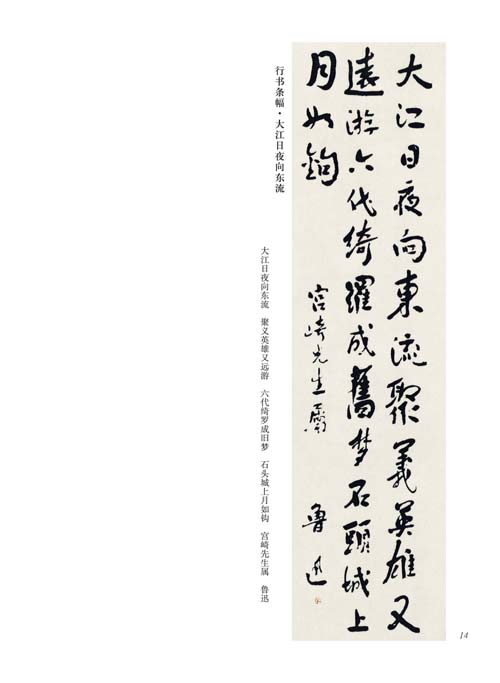 大江日夜向東流聚義英雄又
遠游六代綺羅成舊夢石頭城上
月如鉤
宮崎先生屬
魯迅
行书条幅·大江日夜向东流
大江日夜向东流 聚义英雄又远游 六代绮罗成旧梦 石头城上月如钩 宫崎先生属 鲁迅
14